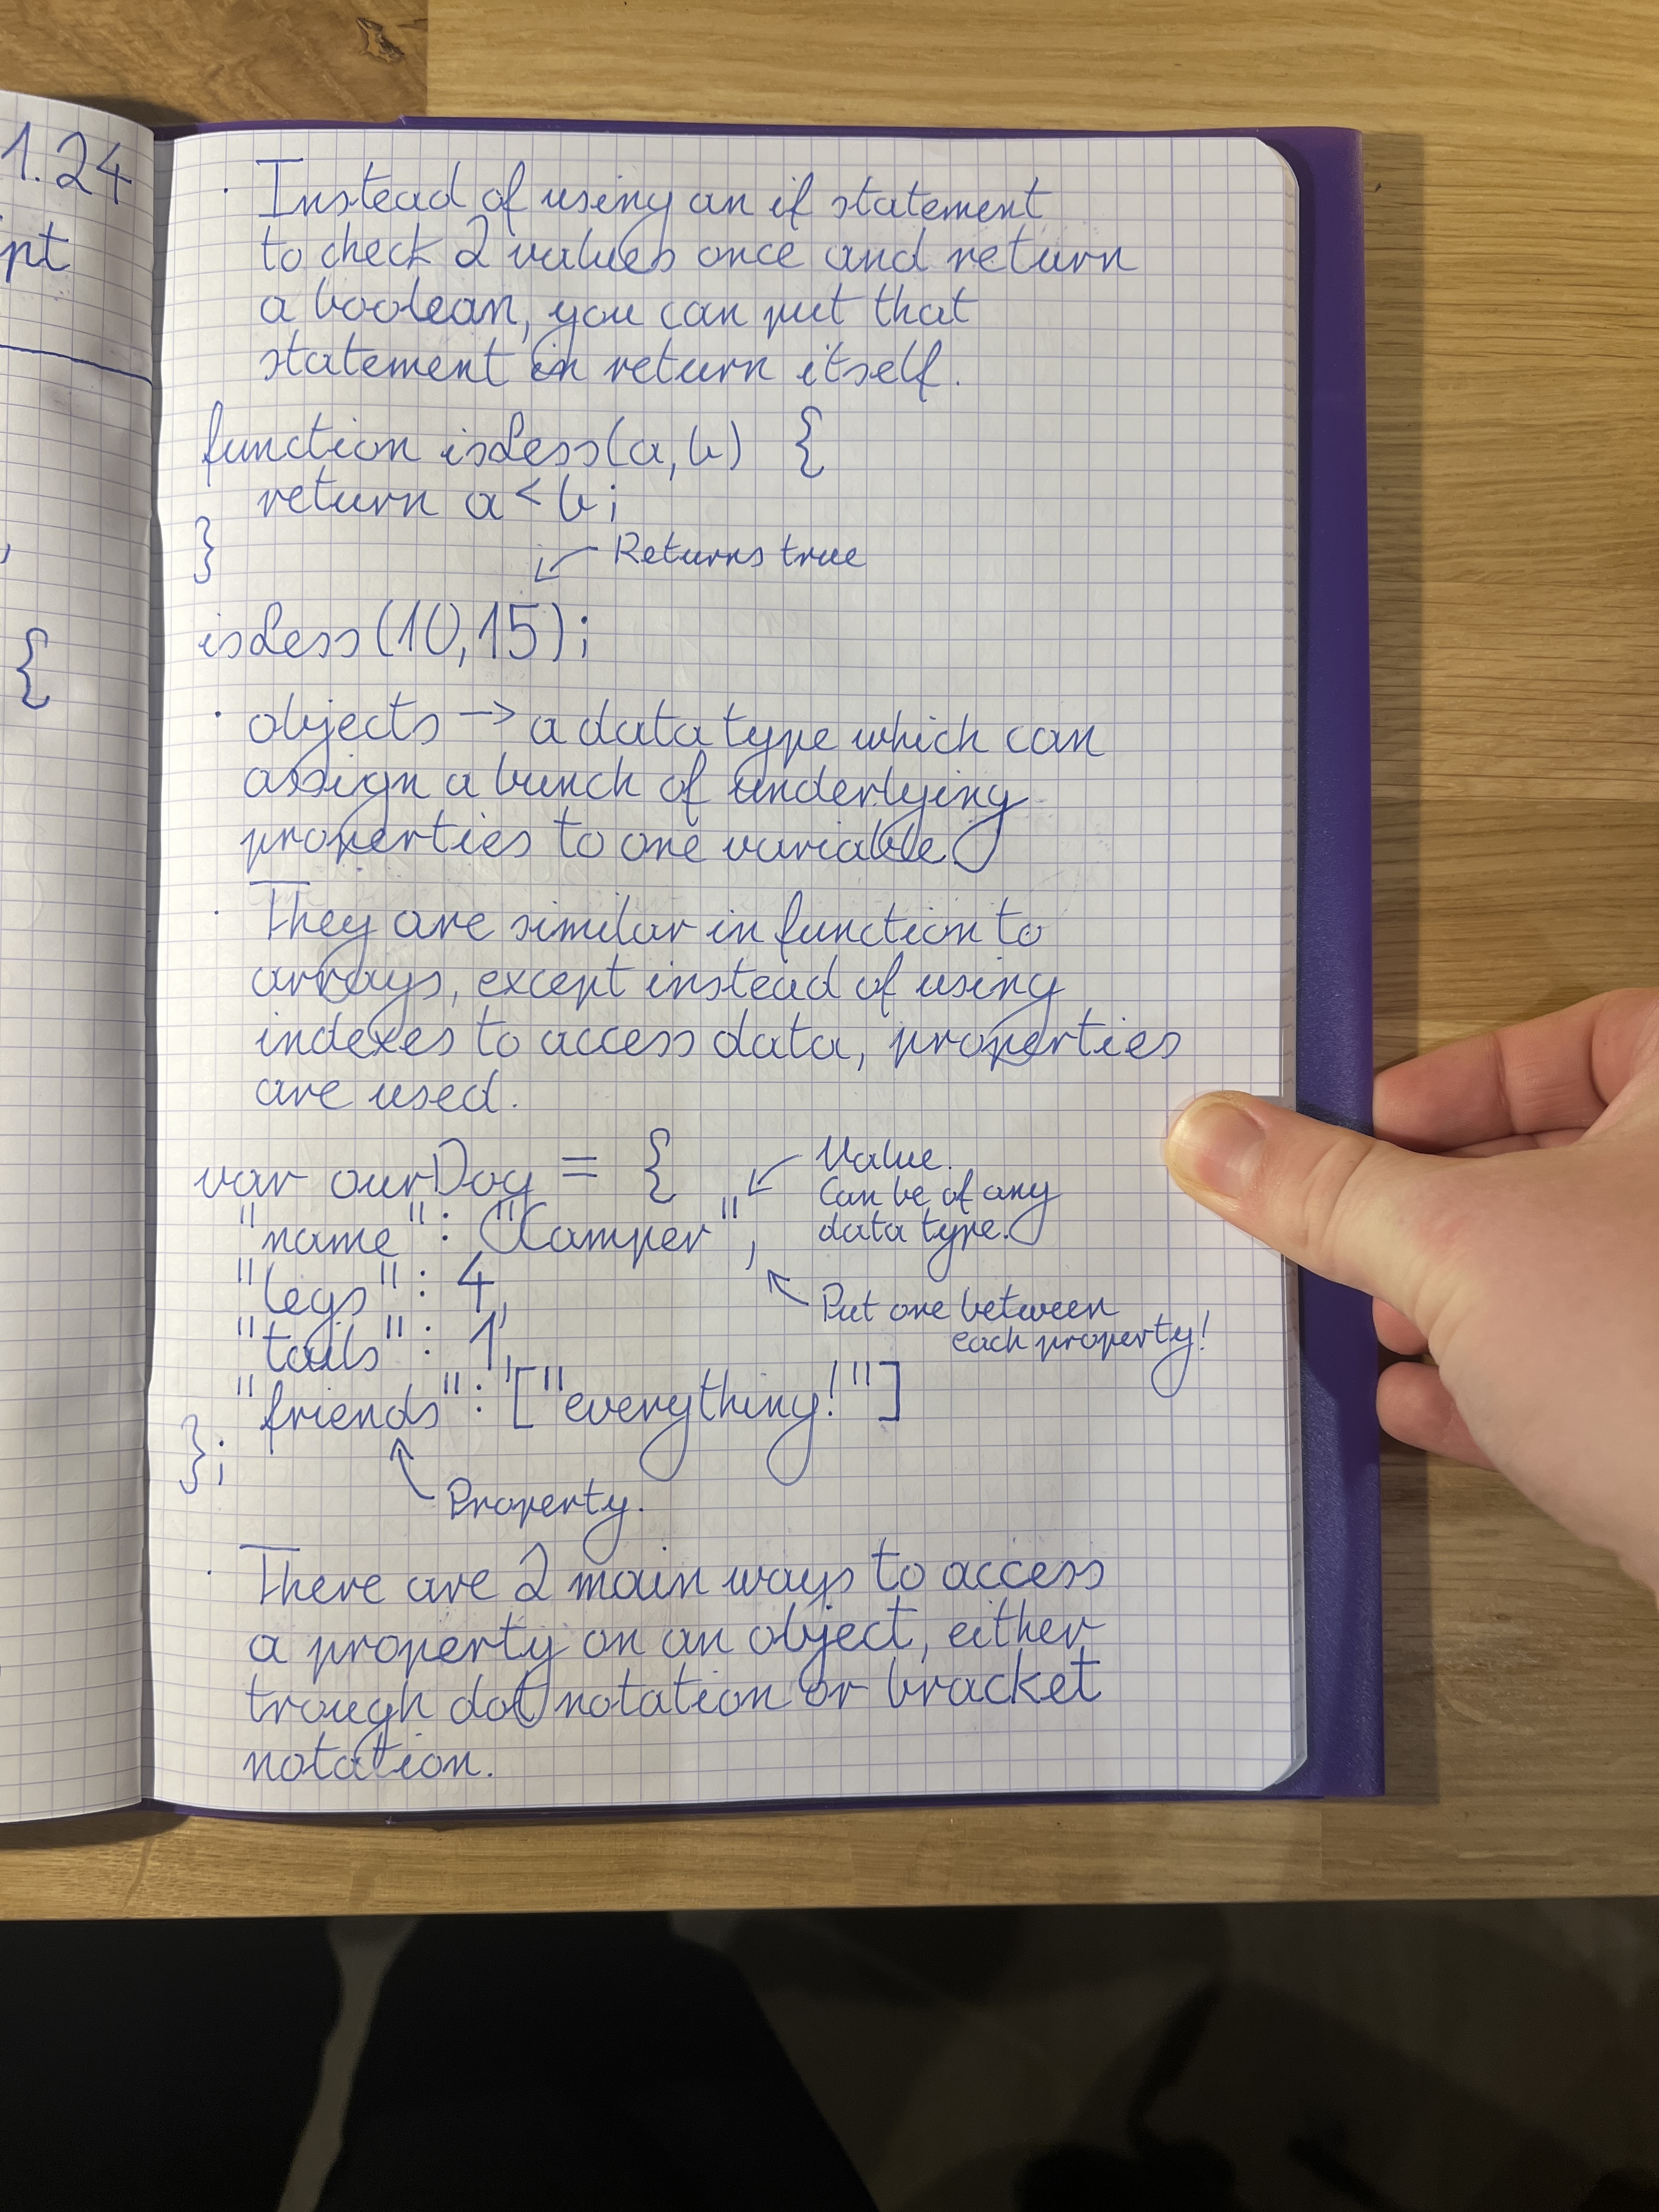 1.24
ipt
{
· Instead of using an if statement
to check 2 values once and return
a boolean, you can put that
statement in return itself.
function isLess(a,b) {
return a < b;
}
↙ Returns true
isLess(10,15);
· objects → a data type which can
assign a bunch of underlying
properties to one variable.
· They are similar in function to
arrays, except instead of using
indexes to access data, properties
are used.
var ourDog = {
↙ Value.
Can be of any
data type.
"name" : "Camper",
"legs" : 4,
↖ Put one between
each property!
"tails" : 1,
"friends" : ["everything!"]
};
↖ Property.
· There are 2 main ways to access
a property on an object, either
trough dot notation or bracket
notation.